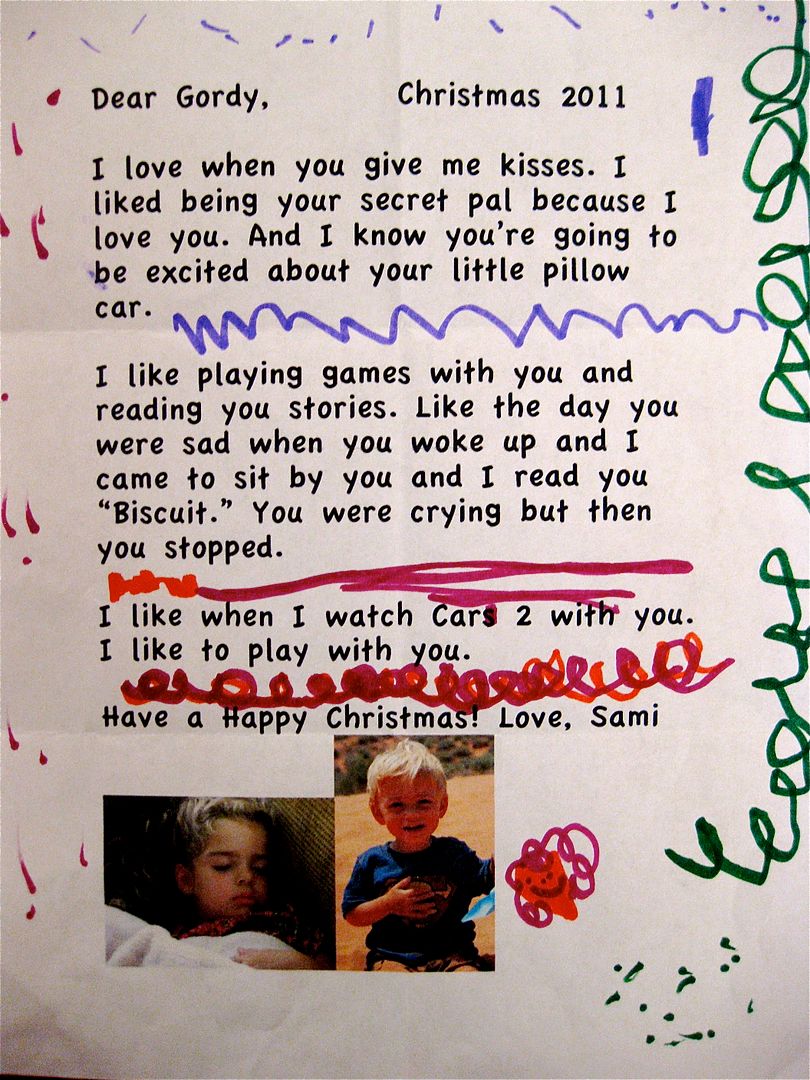 Dear Gordy, Christmas 2011
I love when you give me kisses. I
liked being your secret pal because I
love you. And I know you're going to
be excited about your little pillow
car.
I like playing games with you and
reading you stories. Like the day you
were sad when you woke up and I
came to sit by you and I read you
“Biscuit.” You were crying but then
you stopped.
I like when I watch Cars 2 with you.
I like to play with you.
Have a Happy Christmas! Love, Sami